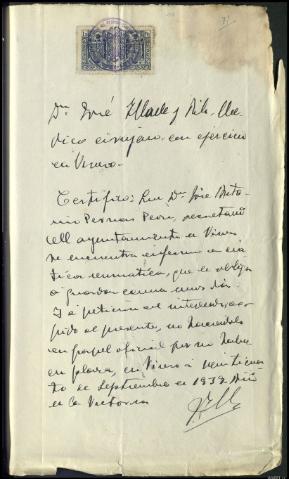 Dn José Illade y Rilo Me-
dico cirujano con ejercicio
en Vivero.
Certifico: Que Dn José Anto-
nio Pernas Peon, secretario
del ayuntamiento de Vivero
se encuentra enfermo de
ciatica reumatica, que le obliga
a guardar cama unos dias.
Y a peticion del interesado ex-
pido el presente, no haciendolo
en papel oficial por no haber
en plaza, en Vivero a veinticua-
tro de Septiembre de 1939 Año
de la Victoria